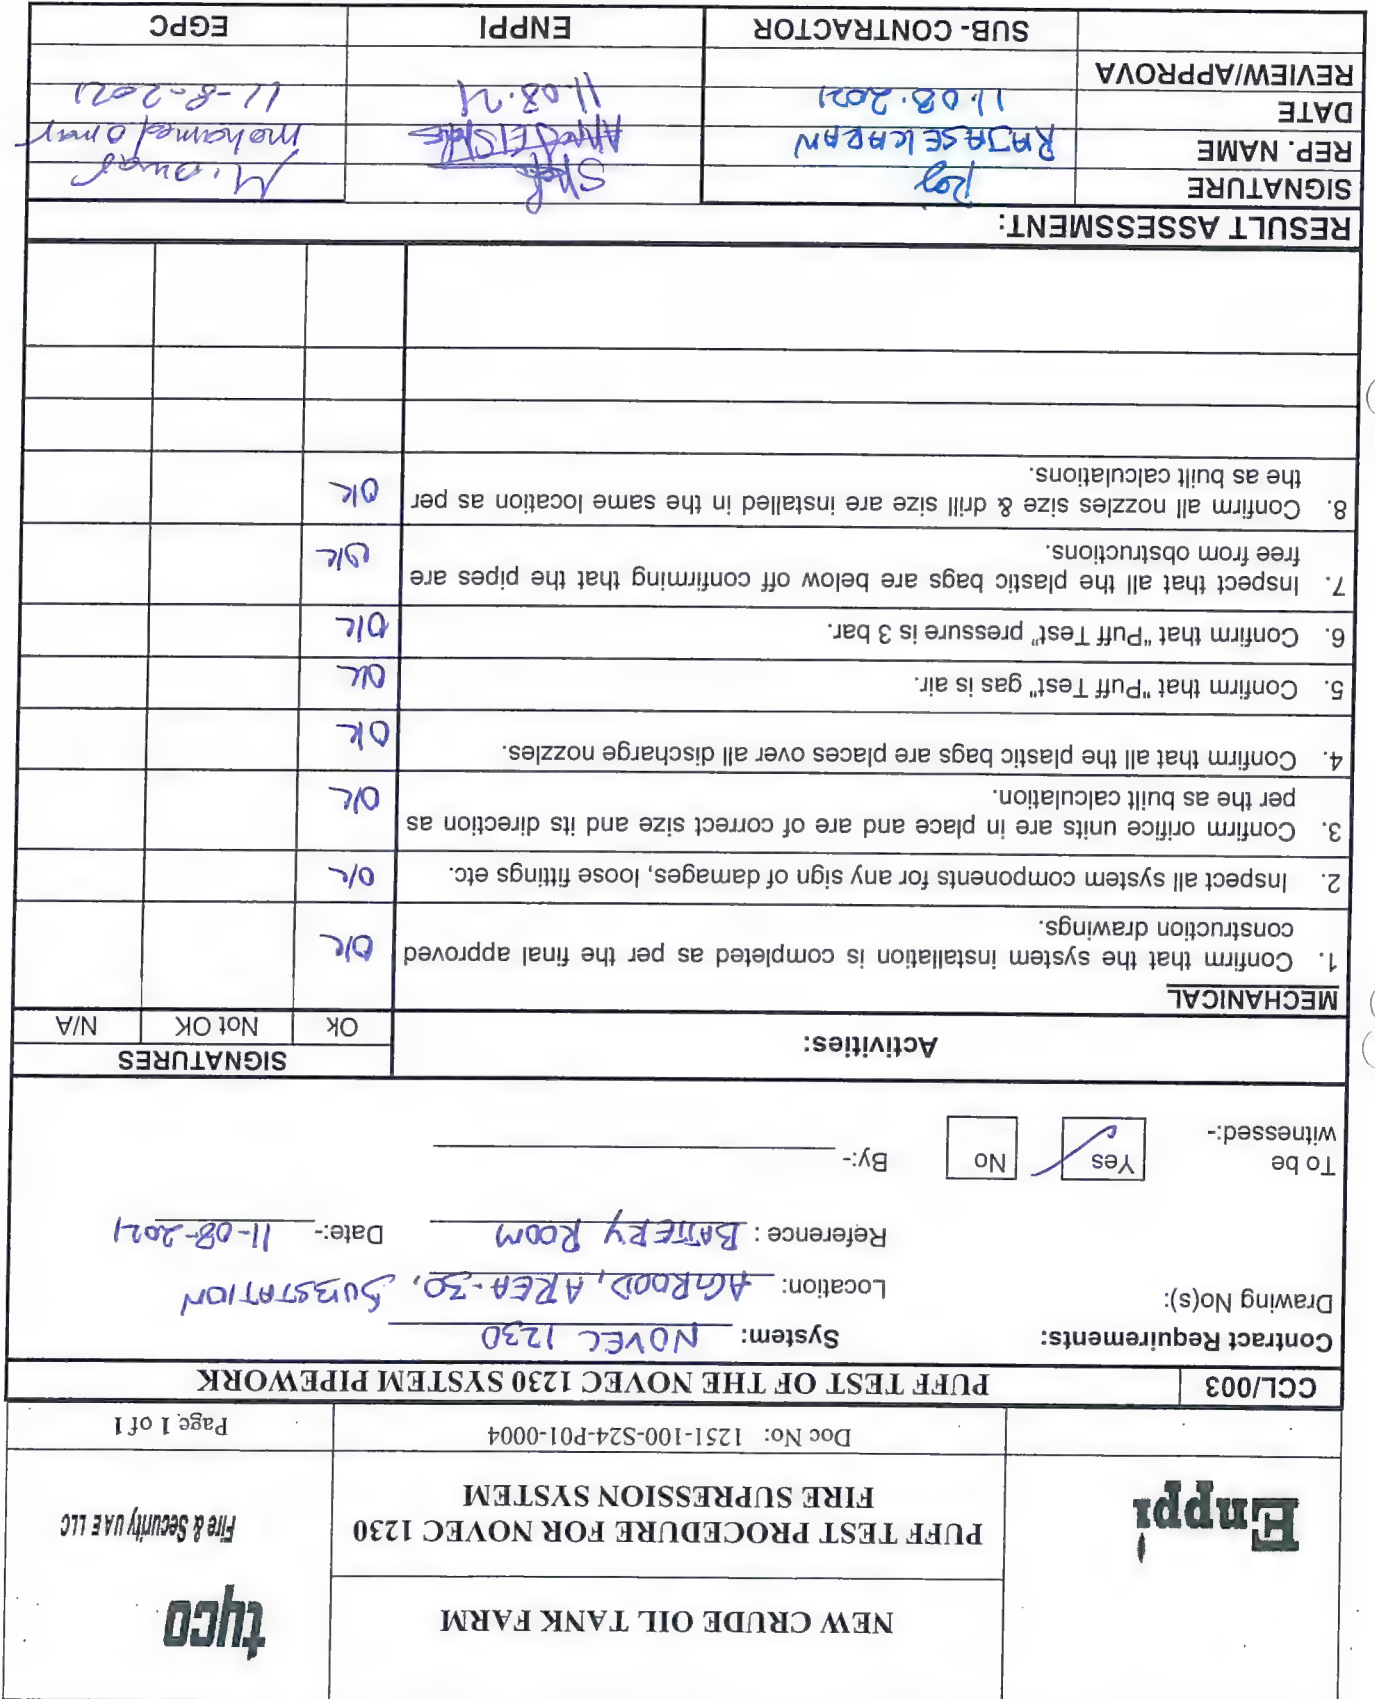 Enppi
NEW CRUDE OIL TANK FARM
tyco
Fire & Security UAE LLC
PUFF TEST PROCEDURE FOR NOVEC 1230
FIRE SUPRESSION SYSTEM
Doc No: 1251-100-S24-P01-0004
Page 1 of 1
CCL/003
PUFF TEST OF THE NOVEC 1230 SYSTEM PIPEWORK
Contract Requirements:
System: NOVEC 1230
Drawing No(s):
Location: AGROOD, AREA-30, SUBSTATION
Reference : BATTERY ROOM Date:- 11-08-2021
To be
witnessed:-
Yes
No
By:-
Activities:
SIGNATURES
Ok Not OK N/A
MECHANICAL
1. Confirm that the system installation is completed as per the final approved
construction drawings.
O/K
2. Inspect all system components for any sign of damages, loose fittings etc.
O/K
3. Confirm orifice units are in place and are of correct size and its direction as
per the as built calculation.
O/K
4. Confirm that all the plastic bags are places over all discharge nozzles.
OK
5. Confirm that "Puff Test" gas is air.
OK
6. Confirm that "Puff Test" pressure is 3 bar.
O/K
7. Inspect that all the plastic bags are below off confirming that the pipes are
free from obstructions.
O/K
8. Confirm all nozzles size & drill size are installed in the same location as per
the as built calculations.
OK
RESULT ASSESSMENT:
SIGNATURE Raj M. Omar
REP. NAME RAJASEKARAN mohamed omar
DATE 11.08.2021 11.08.21 11-8-2021
REVIEW/APPROVA
SUB- CONTRACTOR ENPPI EGPC